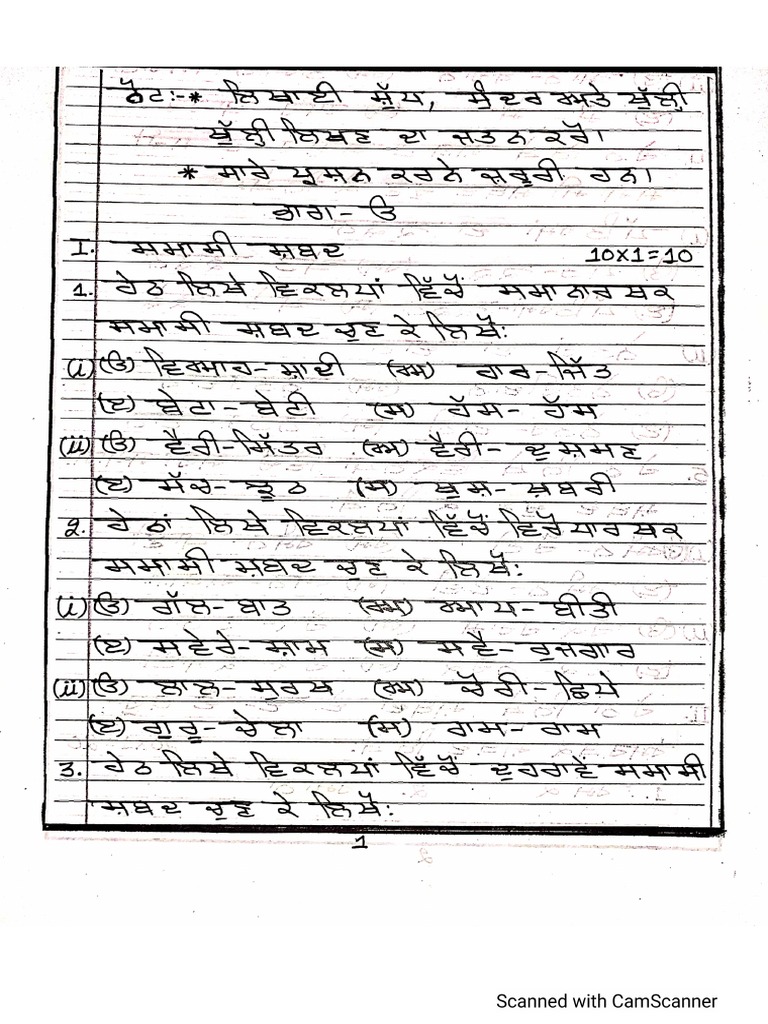 ਨੋਟ:-* ਲਿਖਾਈ ਸ਼ੁੱਧ, ਸੁੰਦਰ ਅਤੇ ਖੁੱਲ੍ਹੀ
ਖੁੱਲ੍ਹੀ ਲਿਖਣ ਦਾ ਜਤਨ ਕਰੋ।
* ਸਾਰੇ ਪ੍ਰਸ਼ਨ ਕਰਨੇ ਜ਼ਰੂਰੀ ਹਨ।
ਭਾਗ- ੳ
I. ਸਮਾਸੀ ਸ਼ਬਦ 10x1=10
1. ਹੇਠ ਲਿਖੇ ਵਿਕਲਪਾਂ ਵਿੱਚੋਂ ਸਮਾਨਾਰਥਕ
ਸਮਾਸੀ ਸ਼ਬਦ ਚੁਣ ਕੇ ਲਿਖੋ:
(i) (ੳ) ਵਿਆਹ-ਸ਼ਾਦੀ (ਅ) ਹਾਰ-ਜਿੱਤ
(ੲ) ਬੇਟਾ-ਬੇਟੀ (ਸ) ਹੱਸ-ਹੱਸ
(ii) (ੳ) ਵੈਰੀ-ਮਿੱਤਰ (ਅ) ਵੈਰੀ-ਦੁਸ਼ਮਣ
(ੲ) ਸੱਚ-ਝੂਠ (ਸ) ਖੁਸ਼-ਖ਼ਬਰੀ
2. ਹੇਠਾਂ ਲਿਖੇ ਵਿਕਲਪਾਂ ਵਿੱਚੋਂ ਵਿਰੋਧਾਰਥਕ
ਸਮਾਸੀ ਸ਼ਬਦ ਚੁਣ ਕੇ ਲਿਖੋ:
(i) (ੳ) ਗੱਲ-ਬਾਤ (ਅ) ਆਪ-ਬੀਤੀ
(ੲ) ਸਵੇਰੇ-ਸ਼ਾਮ (ਸ) ਸਵੈ-ਰੁਜਗਾਰ
(ii) (ੳ) ਲਾਲ-ਸੁਰਖ (ਅ) ਚੋਰੀ-ਛਿਪੇ
(ੲ) ਗੁਰੂ-ਚੇਲਾ (ਸ) ਰਾਮ-ਰਾਮ
3. ਹੇਠ ਲਿਖੇ ਵਿਕਲਪਾਂ ਵਿੱਚੋਂ ਦੁਹਰਾਵੇਂ ਸਮਾਸੀ
ਸ਼ਬਦ ਚੁਣ ਕੇ ਲਿਖੋ:
1
Scanned with CamScanner